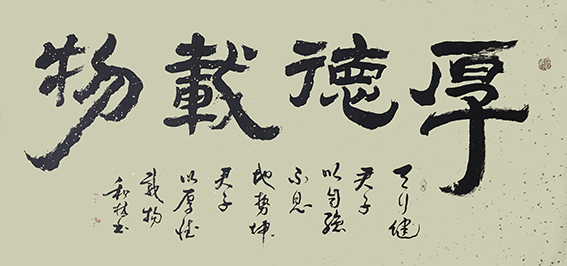 厚德載物
天行健
君子
以自強
不息
地勢坤
君子
以厚德
載物
书